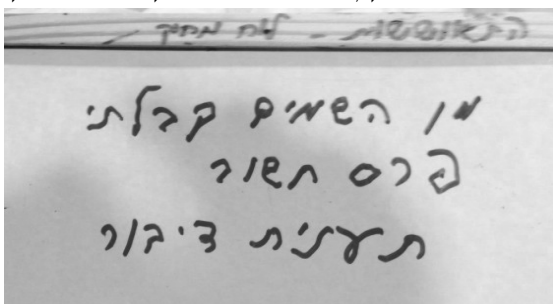 התאוששות - לוח מחיק -
מן השמים קבלתי
פרס חשוב
תענית דיבור